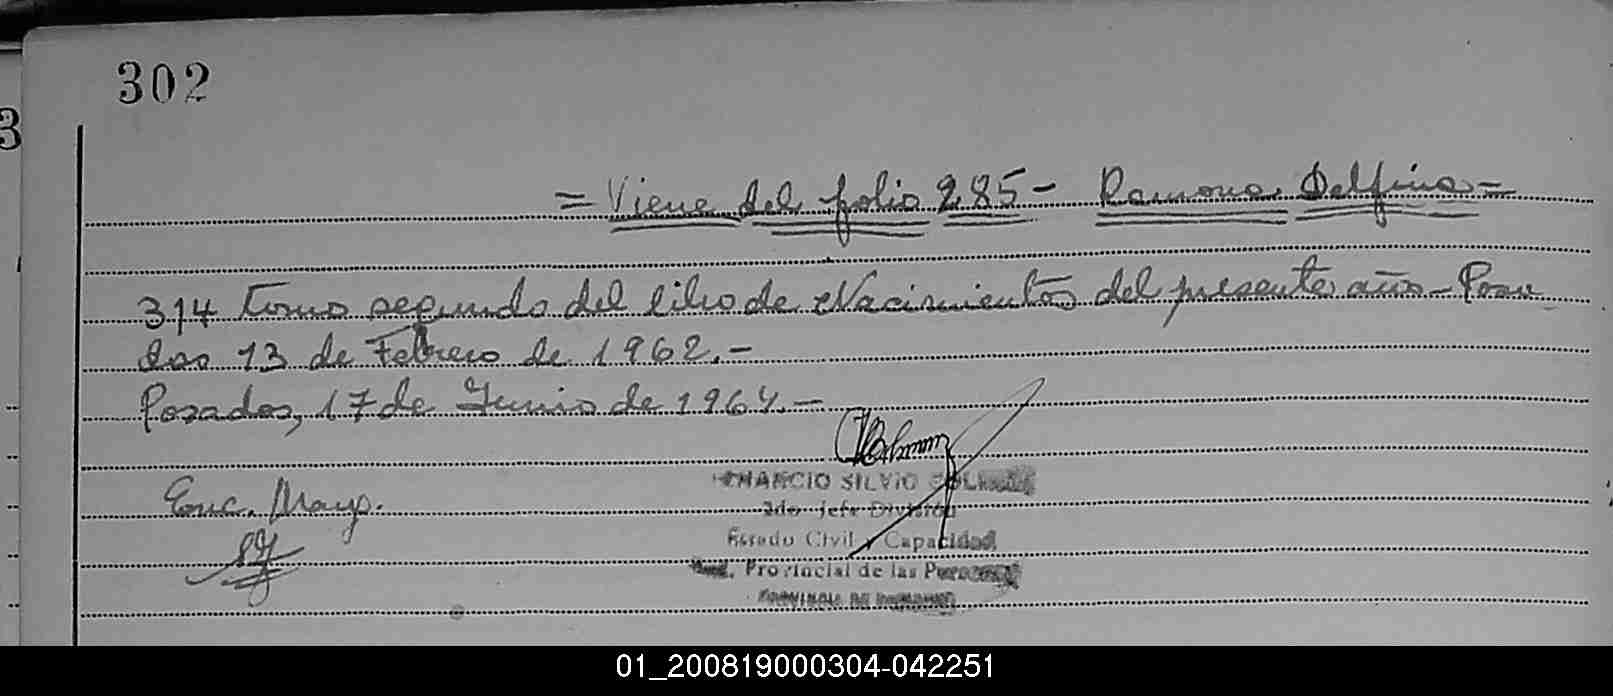 302
3
= Viene del folio 285 - Ramona Delfina =
314 tomo segundo del libro de Nacimientos del presente año - Posa
das 13 de Febrero de 1962.-
Posadas, 17 de Junio de 1964.-
Enc. Mayo.
SILVIO
2do jefe División
Estado Civil y Capacidad
Provincial de las Personas
01_200819000304-042251